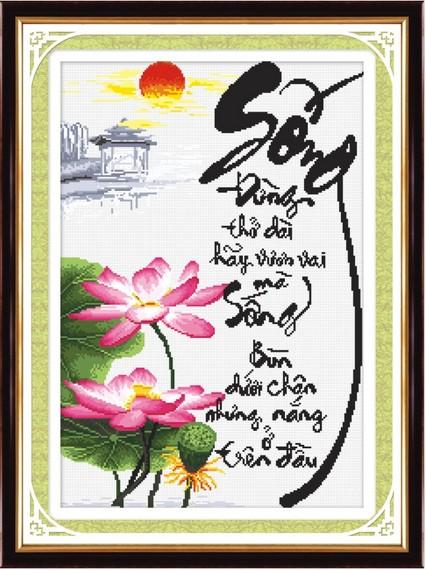 Sống
Đừng
thở dài
hãy vươn vai
mà
Sống
Bùn
dưới chân
nhưng nắng
ở
trên đầu